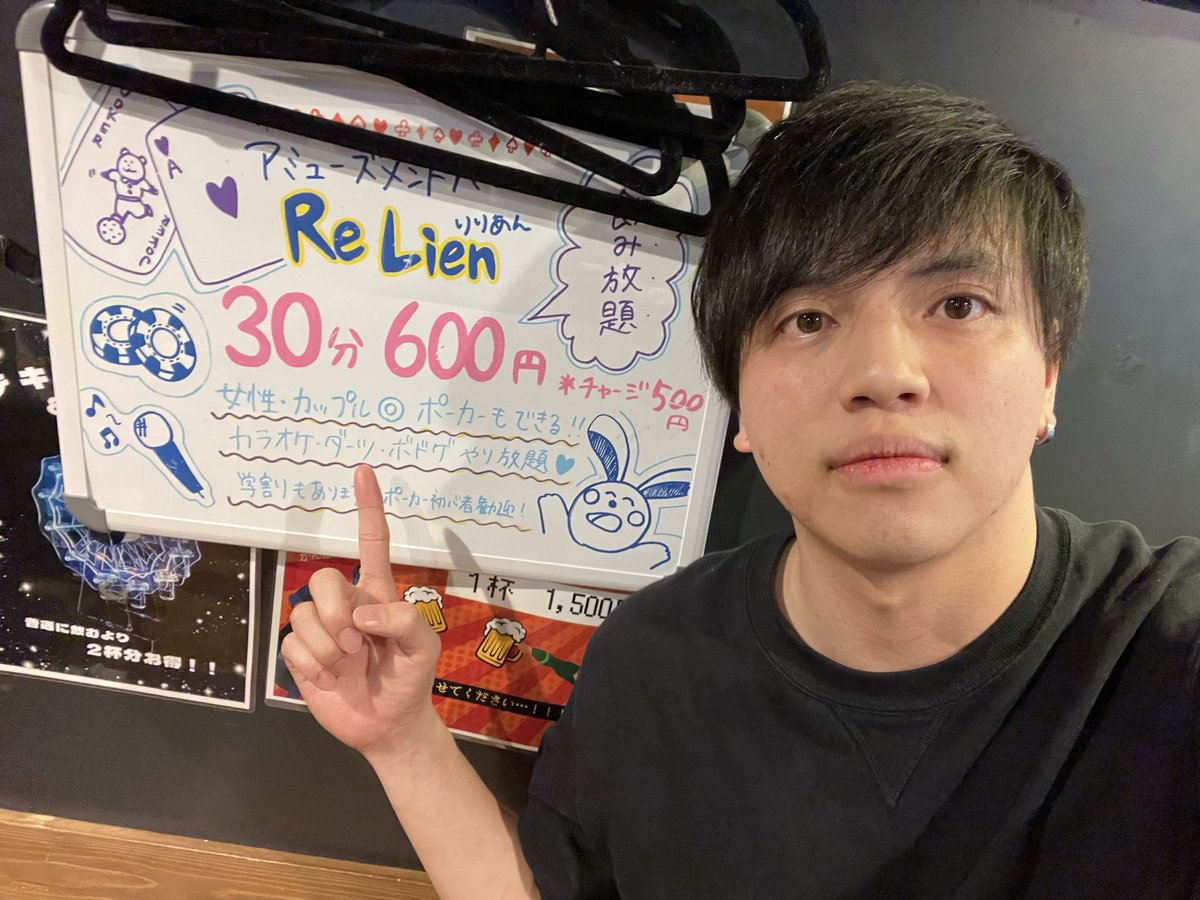 JOKER
A
アミューズメントバ
Re Lien
りりあん
飲み放題
30分 600円
*チャージ500円
女性・カップル◎ ポーカーもできる!!
カラオケ・ダーツ・ボドゲ やり放題
学割もあります ポーカー初心者歓迎!
キ
普通に飲むより
2杯分お得!!
1杯 1,500
せてください…!!